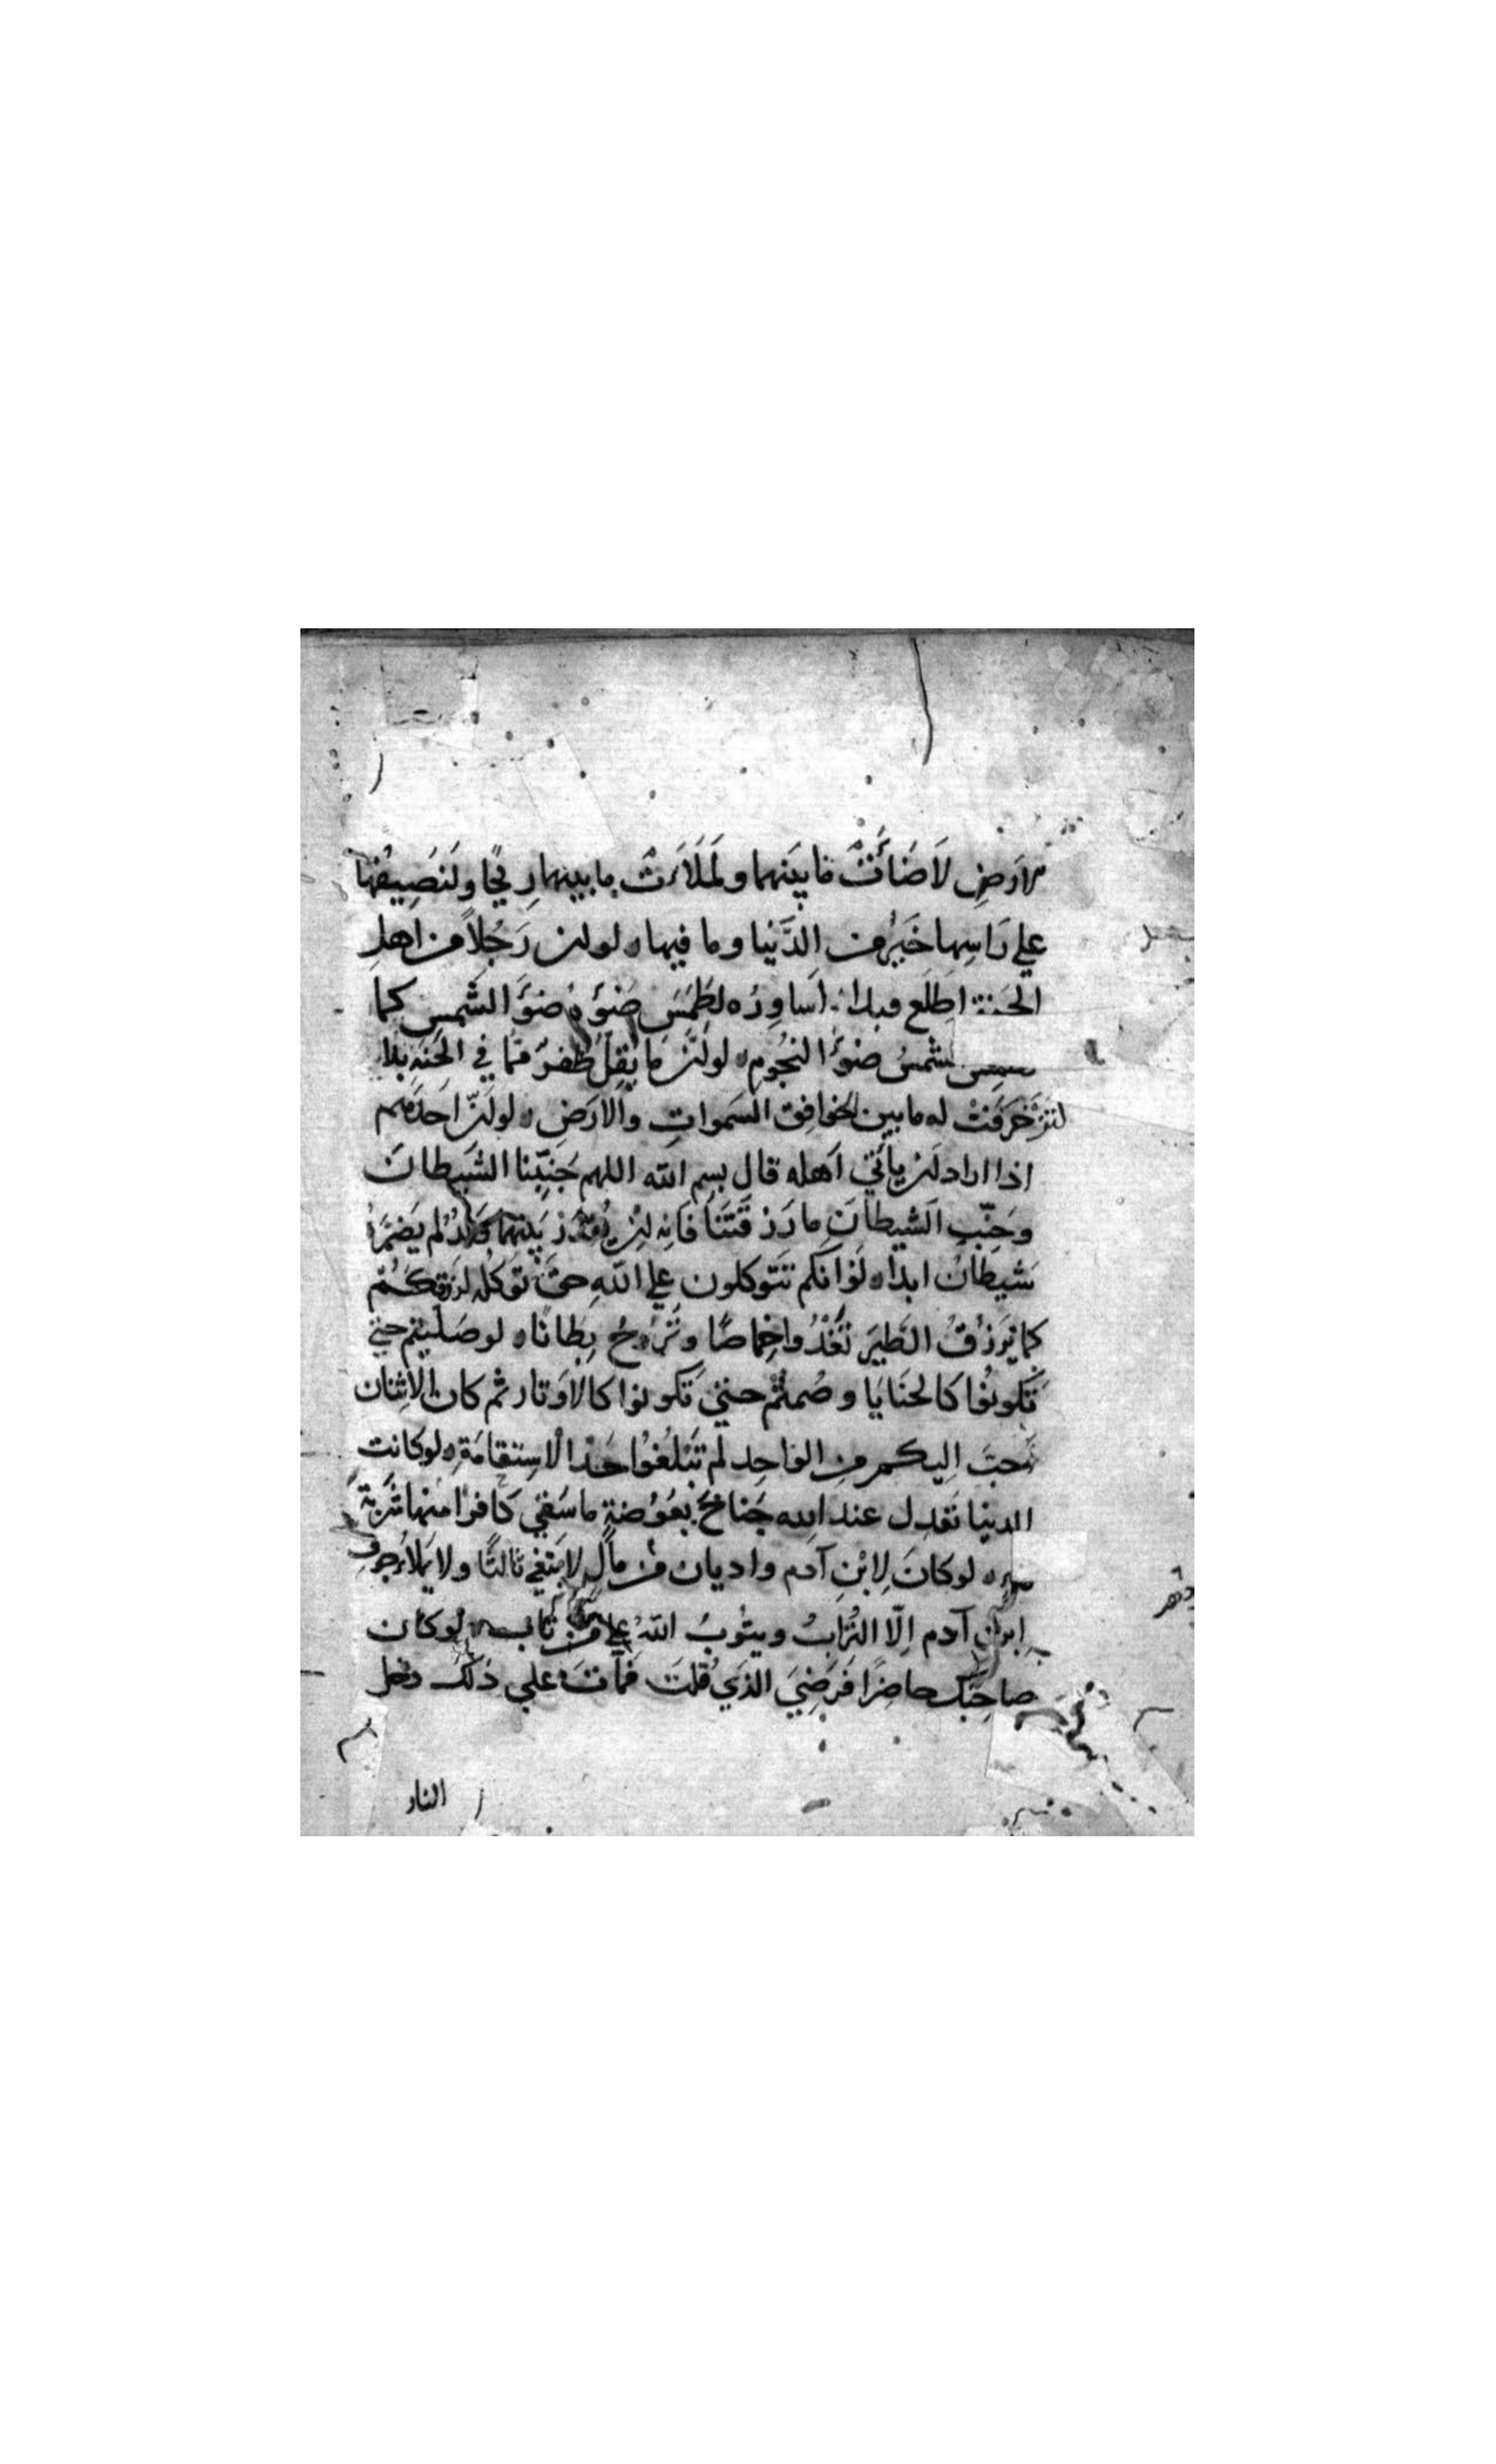 الارَضِ لَاَضَائَتْ مَا بَينَهما ولَمَلَاَتْ ما بينهما رِيحًا ولَنَصِيفُها
علي رَاسِها خَيرٌ من الدَّنيا وما فيها ۵ لو ان رَجُلاً من اهلِ
الجَنة اطلَع فبدا اَساوِرُه لطَمَسَ ضَوْؤُهُ ضؤَ الشَمسِ كما
الشمسُ ضَؤْ النجُومِ ۵ لو انَّ ما يُقِلُّ ظُفرٌ مما في الجَنةِ بدا
لتَزَخْرَفَتْ له ما بين خوافِقِ السَموات والارَضِ ۵ لو اَنّ احَدَهم
اذا اراد اَن ياَتيَ اَهله قال بسم الله اللهم جَنِبّنا الشَيطانَ
وَجَنّبِ الشيطانَ ما رَزقتَنَا فَاِنه اِن يُقَدَّرْ بَينَهما وَلَدٌ لم يَضُرَّهُ
شيطانٌ ابدًا ۵ لَوْ اَنكم تتَوكلون علي اللهِ حقَّ توَكُلهِ لرَزَقكُمْ
كما يَرزُقُ الطَيرَ تَغْدُوا خِماصًا وتَرُوحُ بِطانًا ۵ لو صَلَيتم حتي
تَكونُوا كالحنَايَا وصُمتُمْ حتي تَكونوا كالاَوتار ثم كان الاِثنان
اَحبَّ اِليكم مِن الواحِد لم تَبْلُغوُا حَدَّ الاسِتقامَةِ ۵ لو كانت
الدنيا تَعدِل عند الله جَناحَ بعَوُضةٍ ما سَقي كافرًا منها شَربَةَ
لو كانَ لِابْنِ آدم واديان من مالٍ لابتَغي ثالثًا ولا يَملاُ جوفَ
ابن آدم اِلّا التُرَابُ ويتوُبُ اللهُ علي من تاب ۵ لو كان
صاحِبُك حاضِرًا فَرَضِيَ الذي قُلتَ فماتَ علي ذلك دخل
النار